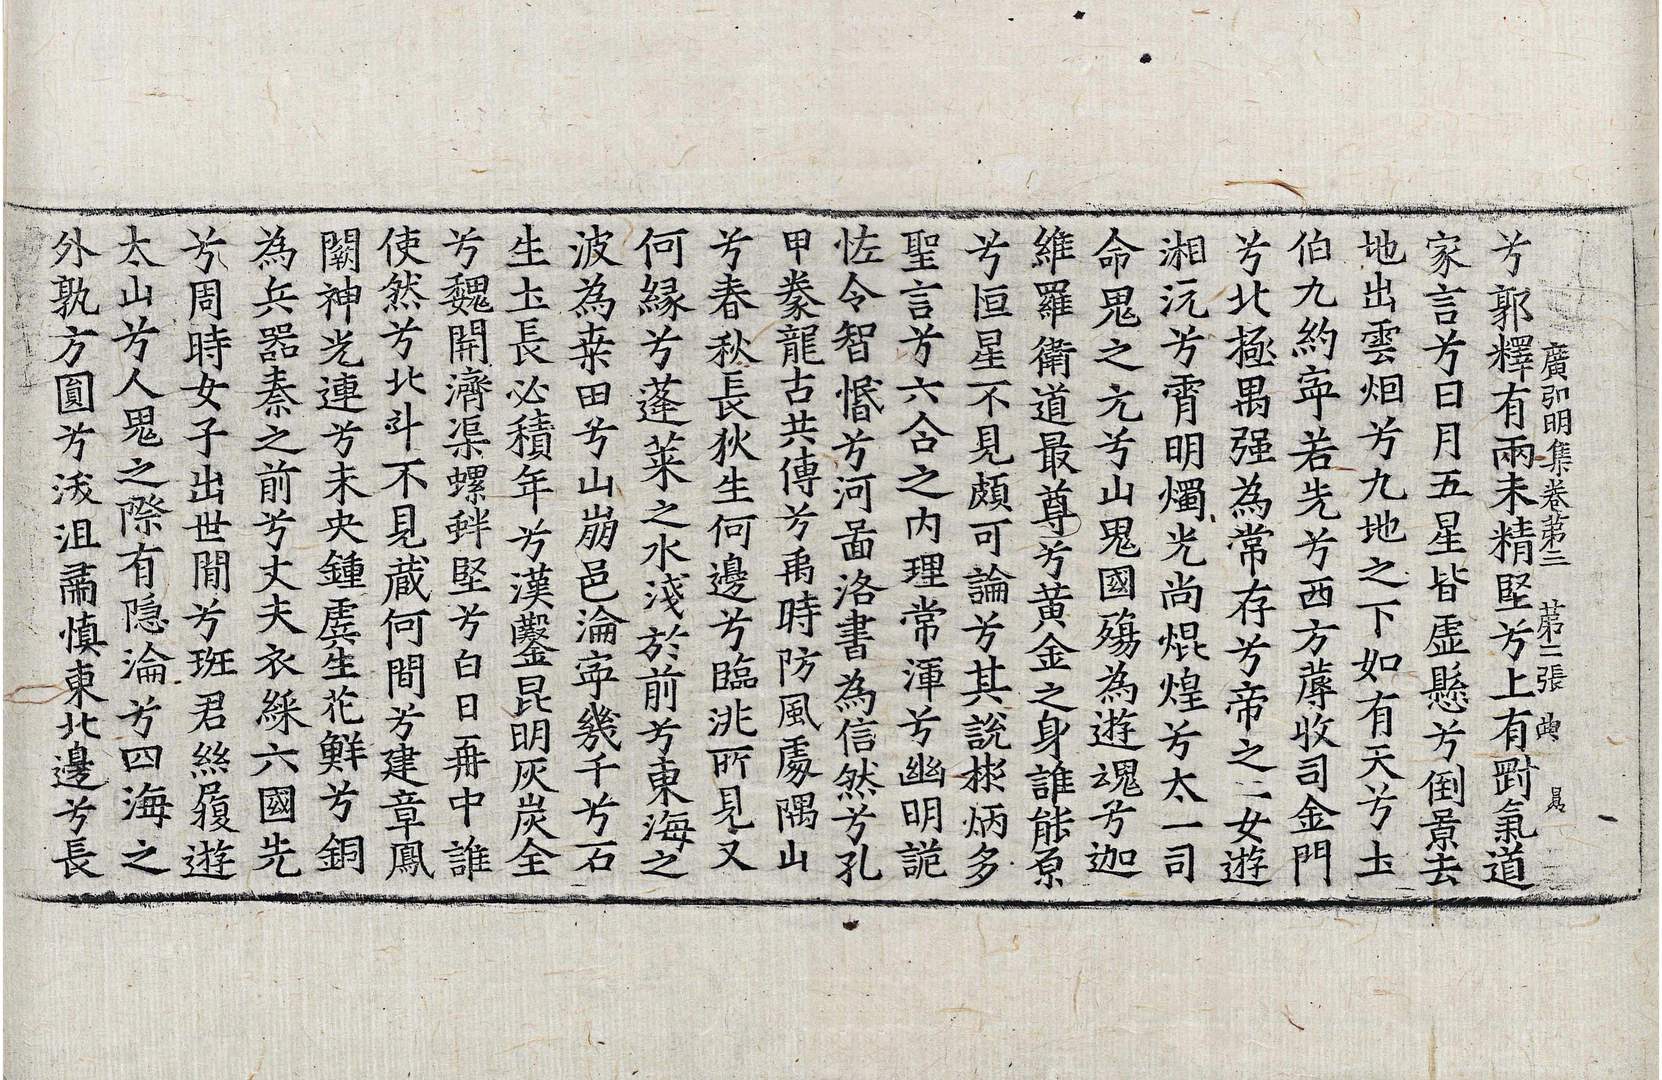 廣弘明集卷第三 第二張 典
兮郭釋有兩未精堅兮上有剛氣道
家言兮日月五星皆虛懸兮倒景去
地出雲烟兮九地之下如有天兮土
伯九約寧若先兮西方蓐收司金門
兮北極禺强為常存兮帝之二女遊
湘沅兮霄明燭光尚焜煌兮太一司
命鬼之元兮山鬼國殤為遊魂兮迦
維羅衛道最尊兮黃金之身誰能原
兮恒星不見頗可論兮其說彬炳多
聖言兮六合之內理常渾兮幽明詭
怪令智惛兮河圖洛書為信然兮孔
甲豢龍古共傳兮禹時防風處隅山
兮春秋長狄生何邊兮臨洮所見又
何緣兮蓬萊之水淺於前兮東海之
波為桒田兮山崩邑淪寧幾千兮石
生土長必積年兮漢鑿昆明灰炭全
兮魏開濟渠螺蚌堅兮白日再中誰
使然兮北斗不見藏何間兮建章鳳
闕神光連兮未央鍾虡生花鮮兮銅
為兵器秦之前兮丈夫衣綵六國先
兮周時女子出世間兮班君絲履遊
太山兮人鬼之際有隱淪兮四海之
外孰方圓兮沃沮肅慎東北邊兮長